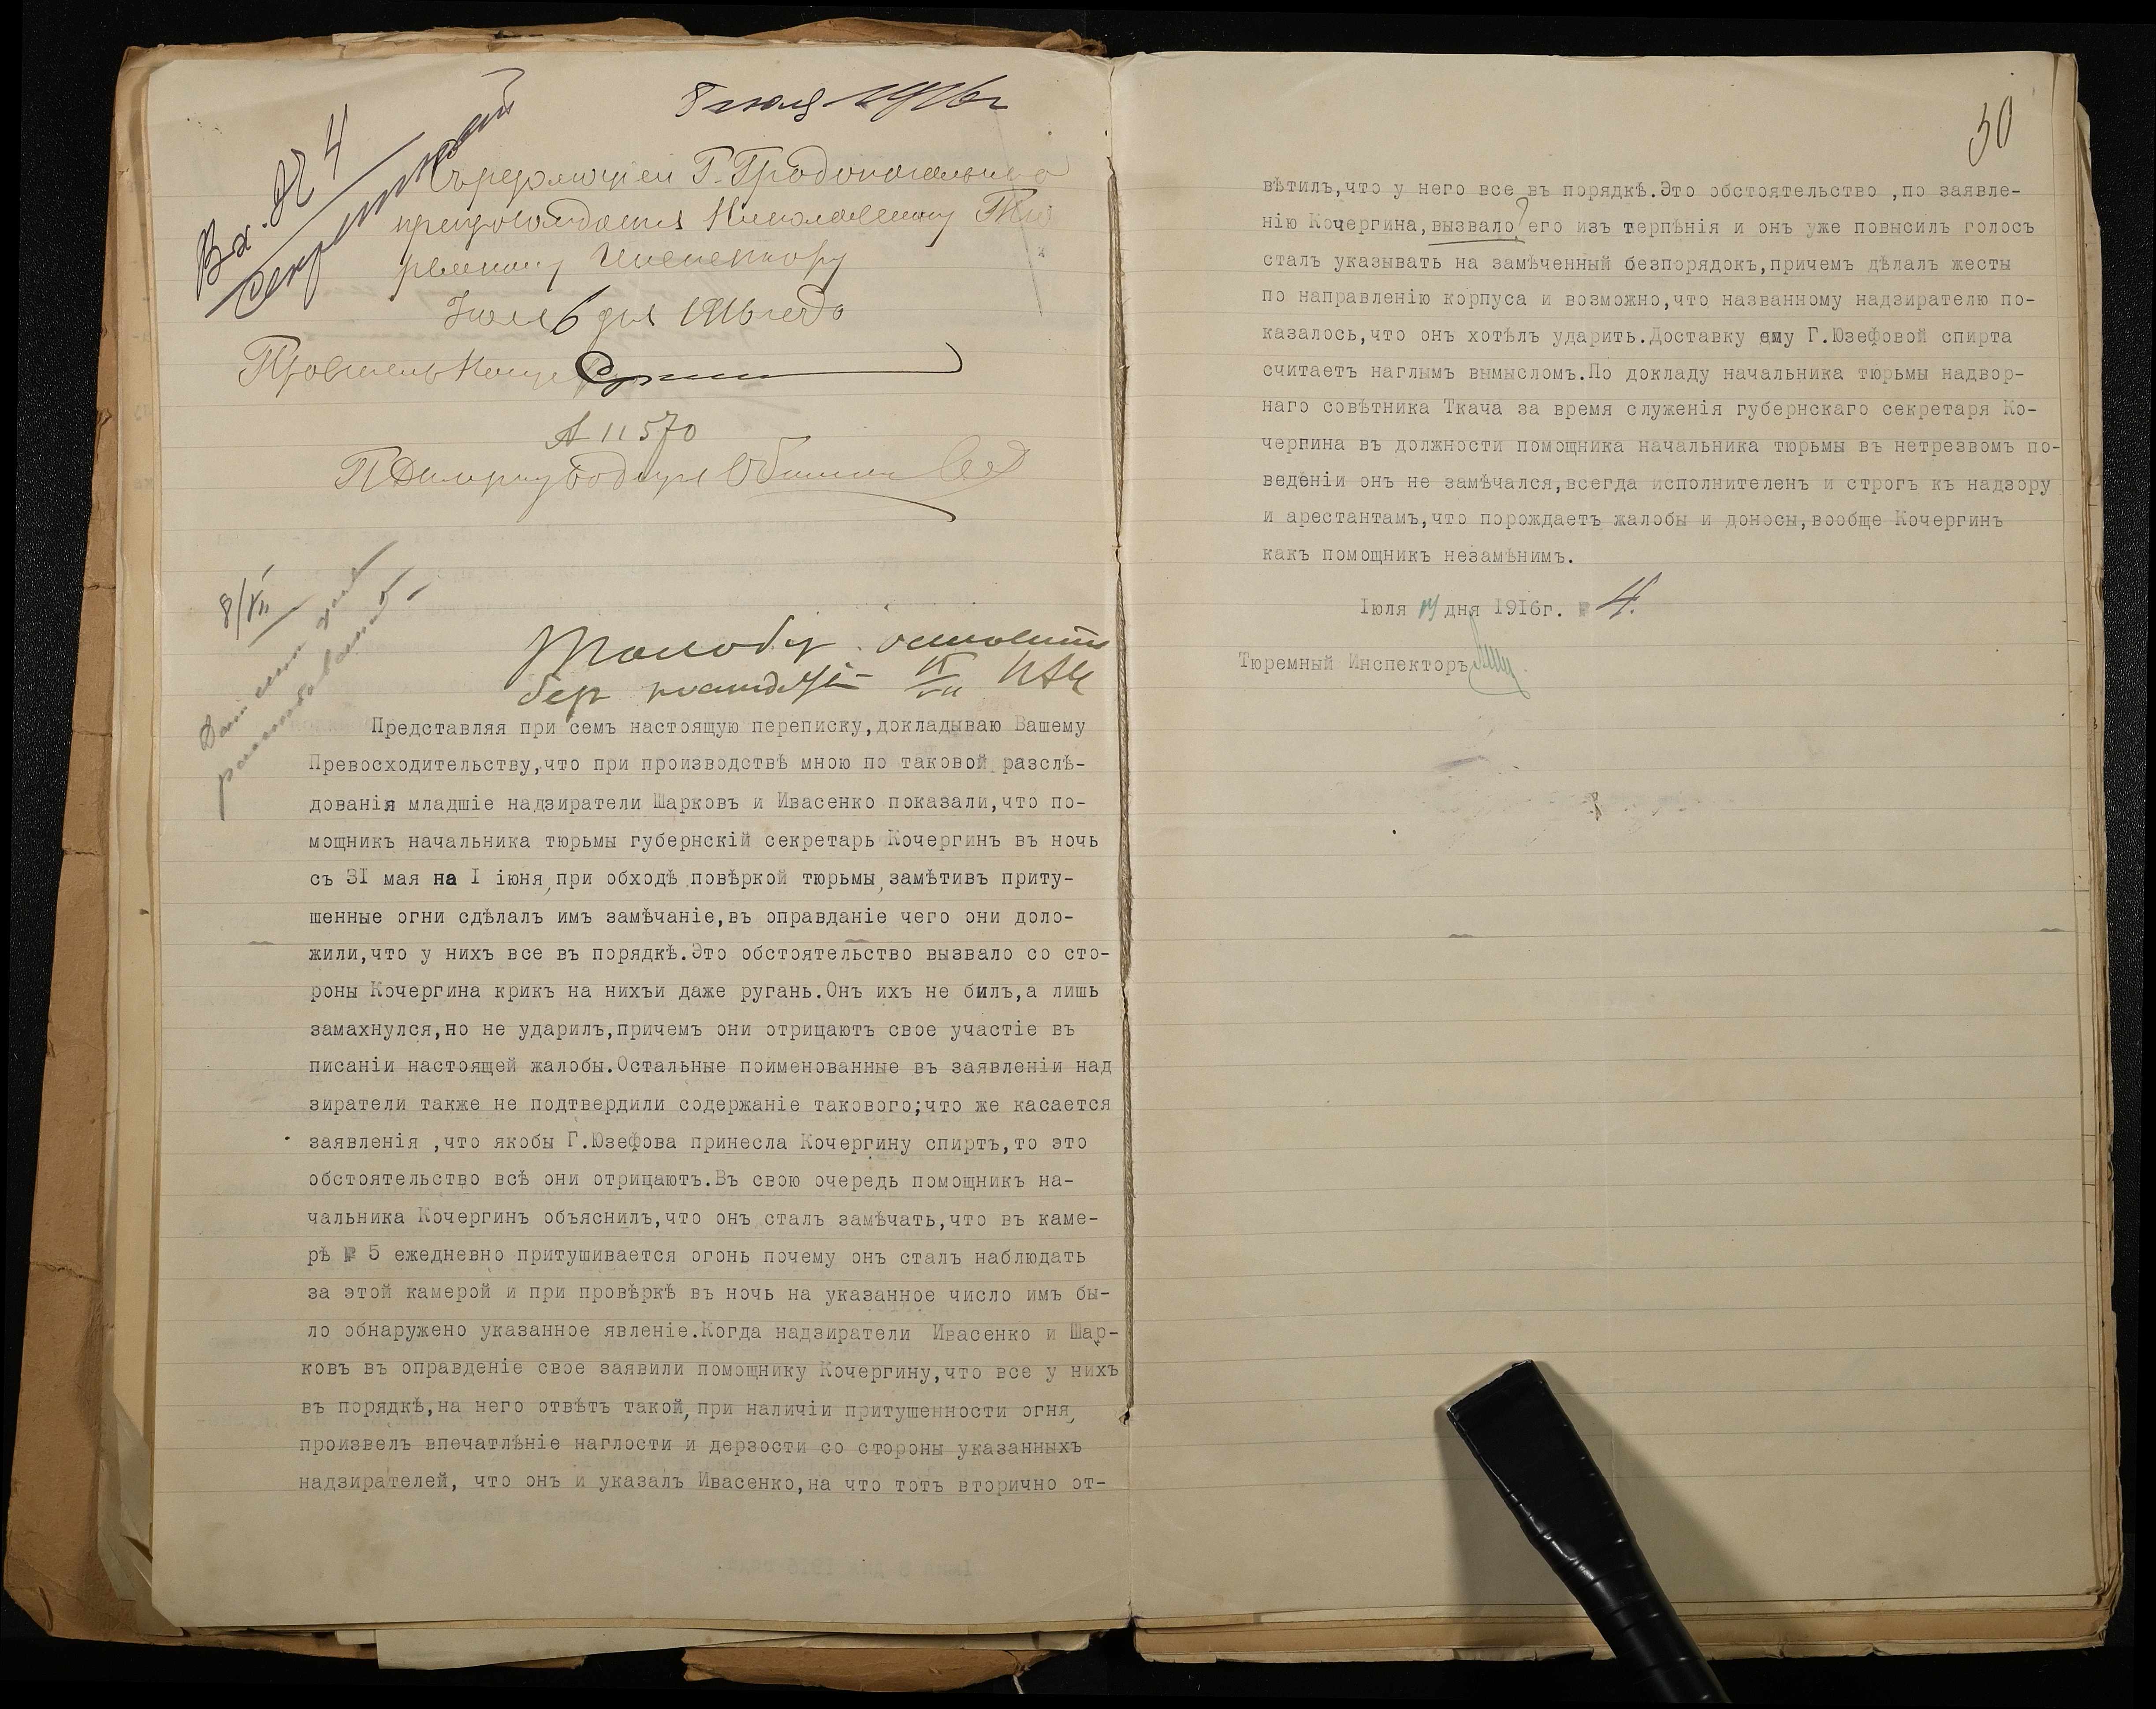 8 июля 1916 г
Вх. № 4
секретный
Съ резолюціей Г. Градоначальника
препровождается Николаевскому Тю
ремному Инспектору
Іюля 6 дня 1916 года
Правитель Канце
№ 11570
8/VII
Жалобу оставить
без послѣдствій
Представляя при семъ настоящую переписку,докладываю Вашему
Превосходительству,что при производствѣ мною по таковой разслѣ-
дованія младшіе надзиратели Шарковъ и Ивасенко показали,что по-
мощникъ начальника тюрьмы губернскій секретарь Кочергинъ въ ночь
съ 31 мая на I іюня,при обходѣ повѣркой тюрьмы,замѣтивъ приту-
шенные огни сдѣлалъ имъ замѣчаніе,въ оправданіе чего они доло-
жили,что у нихъ все въ порядкѣ.Это обстоятельство вызвало со сто-
роны Кочергина крикъ на нихъи даже ругань.Онъ ихъ не билъ,а лишь
замахнулся,но не ударилъ,причемъ они отрицаютъ свое участіе въ
писаніи настоящей жалобы.Остальные поименованные въ заявленіи над
зиратели также не подтвердили содержаніе такового;что же касается
заявленія ,что якобы Г.Юзефова принесла Кочергину спиртъ,то это
обстоятельство всѣ они отрицаютъ.Въ свою очередь помощникъ на-
чальника Кочергинъ объяснилъ,что онъ сталъ замѣчать,что въ каме-
рѣ № 5 ежедневно притушивается огонь почему онъ сталъ наблюдать
за этой камерой и при провѣркѣ въ ночь на указанное число имъ бы-
ло обнаружено указанное явленіе.Когда надзиратели Ивасенко и Шар-
ковъ въ оправденіе свое заявили помощнику Кочергину,что все у нихъ
въ порядкѣ,на него отвѣтъ такой,при наличіи притушенности огня,
произвелъ впечатлѣніе наглости и дерзости со стороны указанныхъ
надзирателей, что онъ и указалъ Ивасенко,на что тотъ вторично от-
30
вѣтилъ,что у него все въ порядкѣ.Это обстоятельство ,по заявле-
нію Кочергина,вызвало?его изъ терпѣнія и онъ уже повысилъ голосъ
сталъ указывать на замѣченный безпорядокъ,причемъ дѣлалъ жесты
по направленію корпуса и возможно,что названному надзирателю по-
казалось,что онъ хотѣлъ ударить.Доставку ему Г.Юзефовой спирта
считаетъ наглымъ вымысломъ.По докладу начальника тюрьмы надвор-
наго совѣтника Ткача за время служенія губернскаго секретаря Ко-
чергина въ должности помощника начальника тюрьмы въ нетрезвомъ по-
веденіи онъ не замѣчался,всегда исполнителенъ и строгъ къ надзору
и арестантамъ,что порождаетъ жалобы и доносы,вообще Кочергинъ
какъ помощникъ незамѣнимъ.
Іюля дня 1916г. № 4.
Тюремный Инспекторъ